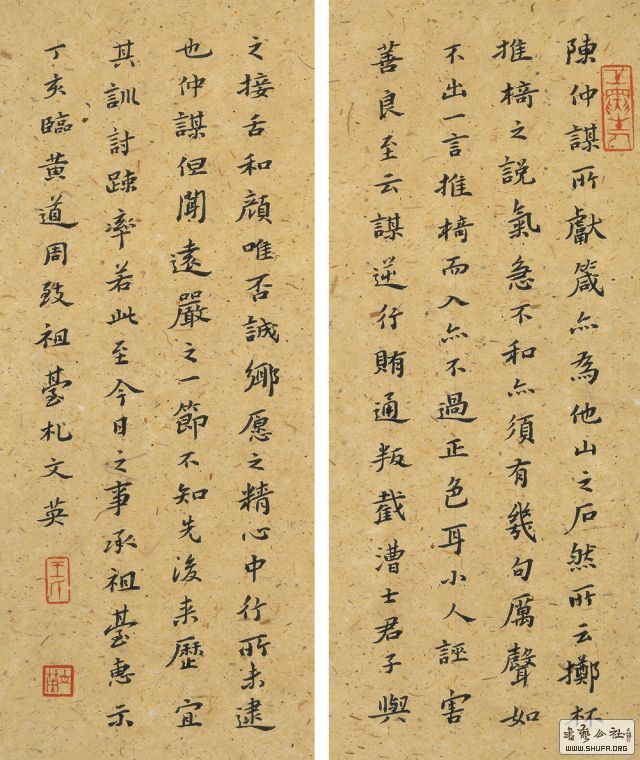 陳仲謀所獻箴亦為他山之石然所云擲杯
推椅之說氣急不和亦須有幾句厲聲如
不出一言推椅而入亦不過正色耳小人誣害
善良至云謀逆行賄通叛截漕士君子與
之接舌和顔唯否誠鄉愿之精心中行所未逮
也仲謀但聞遠嚴之一節不知先後来歷宜
其訓討踈率若此至今日之事承祖臺惠示
丁亥臨黄道周致祖臺札文英
WWW.SHUFA.ORG